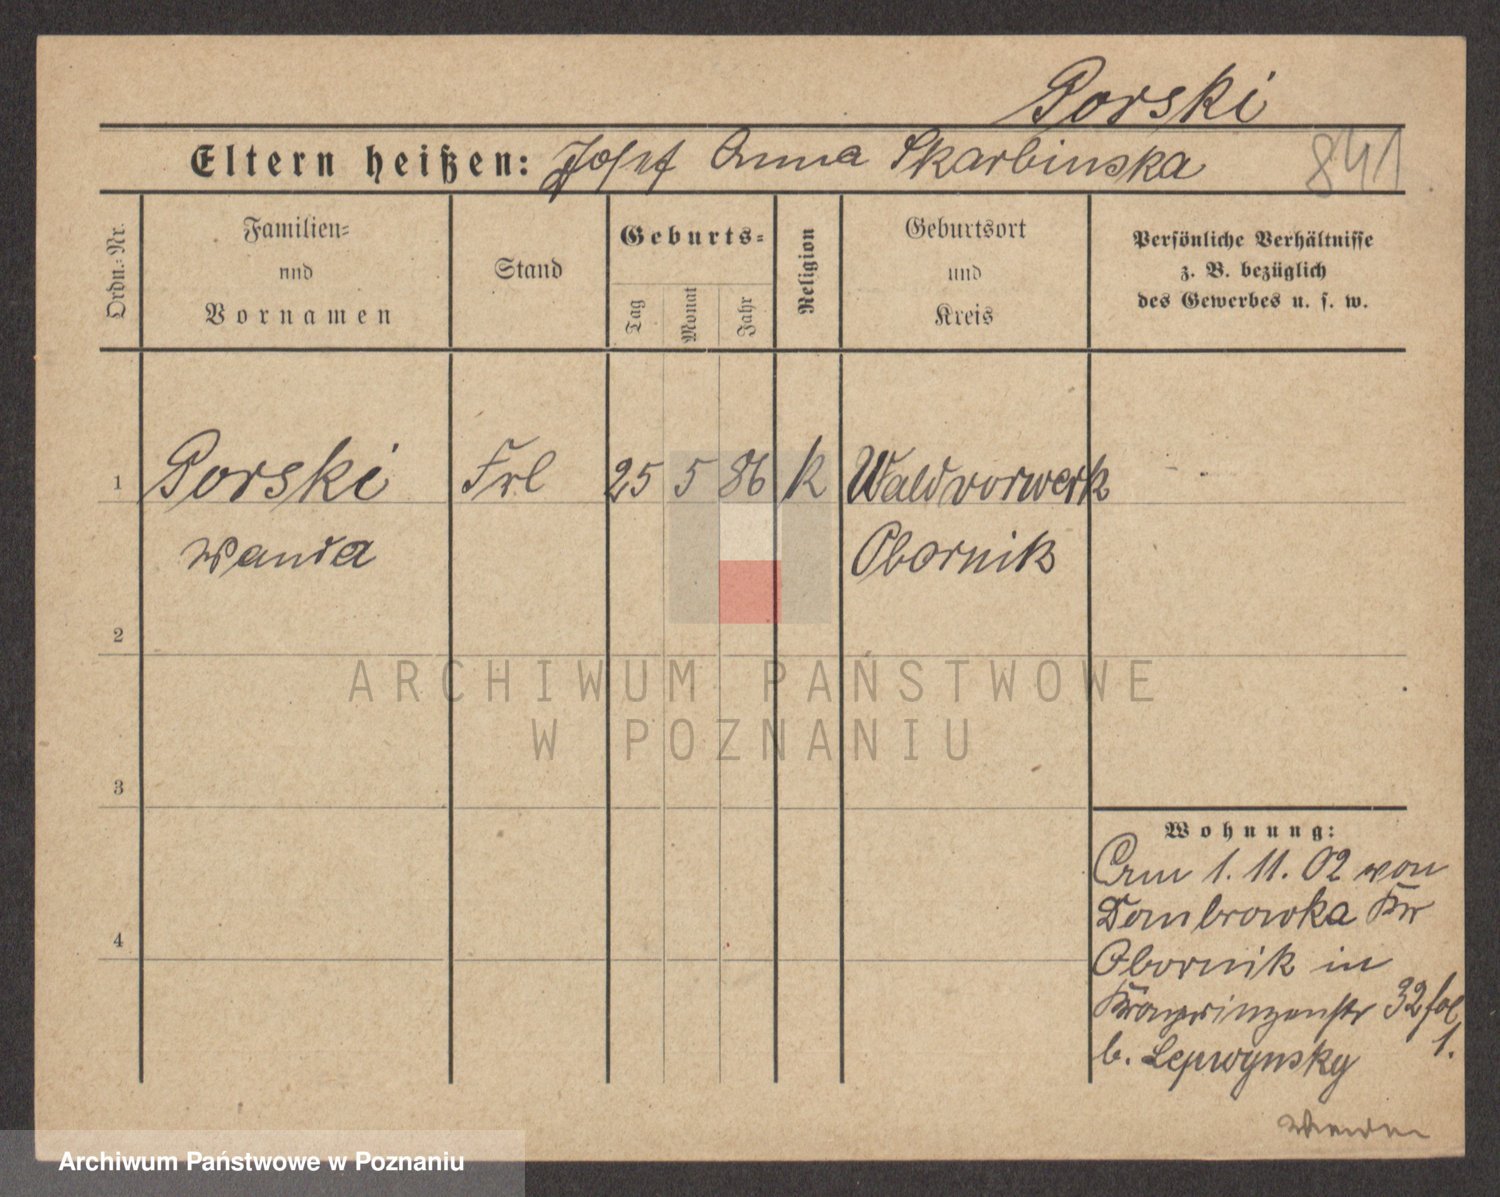 Porski
Eltern heißen: Josef Anna Skarbinska 841
Ordn.-Nr.
Familien-
und
Vornamen
Stand
Geburts-
Tag Monat Jahr
Religion
Geburtsort
und
Kreis
Persönliche Verhältnisse
z. B. bezüglich
des Gewerbes u. s. w.
1 Porski Frl 25 5 86 K Waldvorwerk
Wanda Obornik
2
ARCHIWUM PAŃSTWOWE
W POZNANIU
3
Wohnung:
1. 11. 02 von
Dombrowka Kr
4
Obornik in
Kronprinzenstr 32 fol
1.
b.
Archiwum Państwowe w Poznaniu